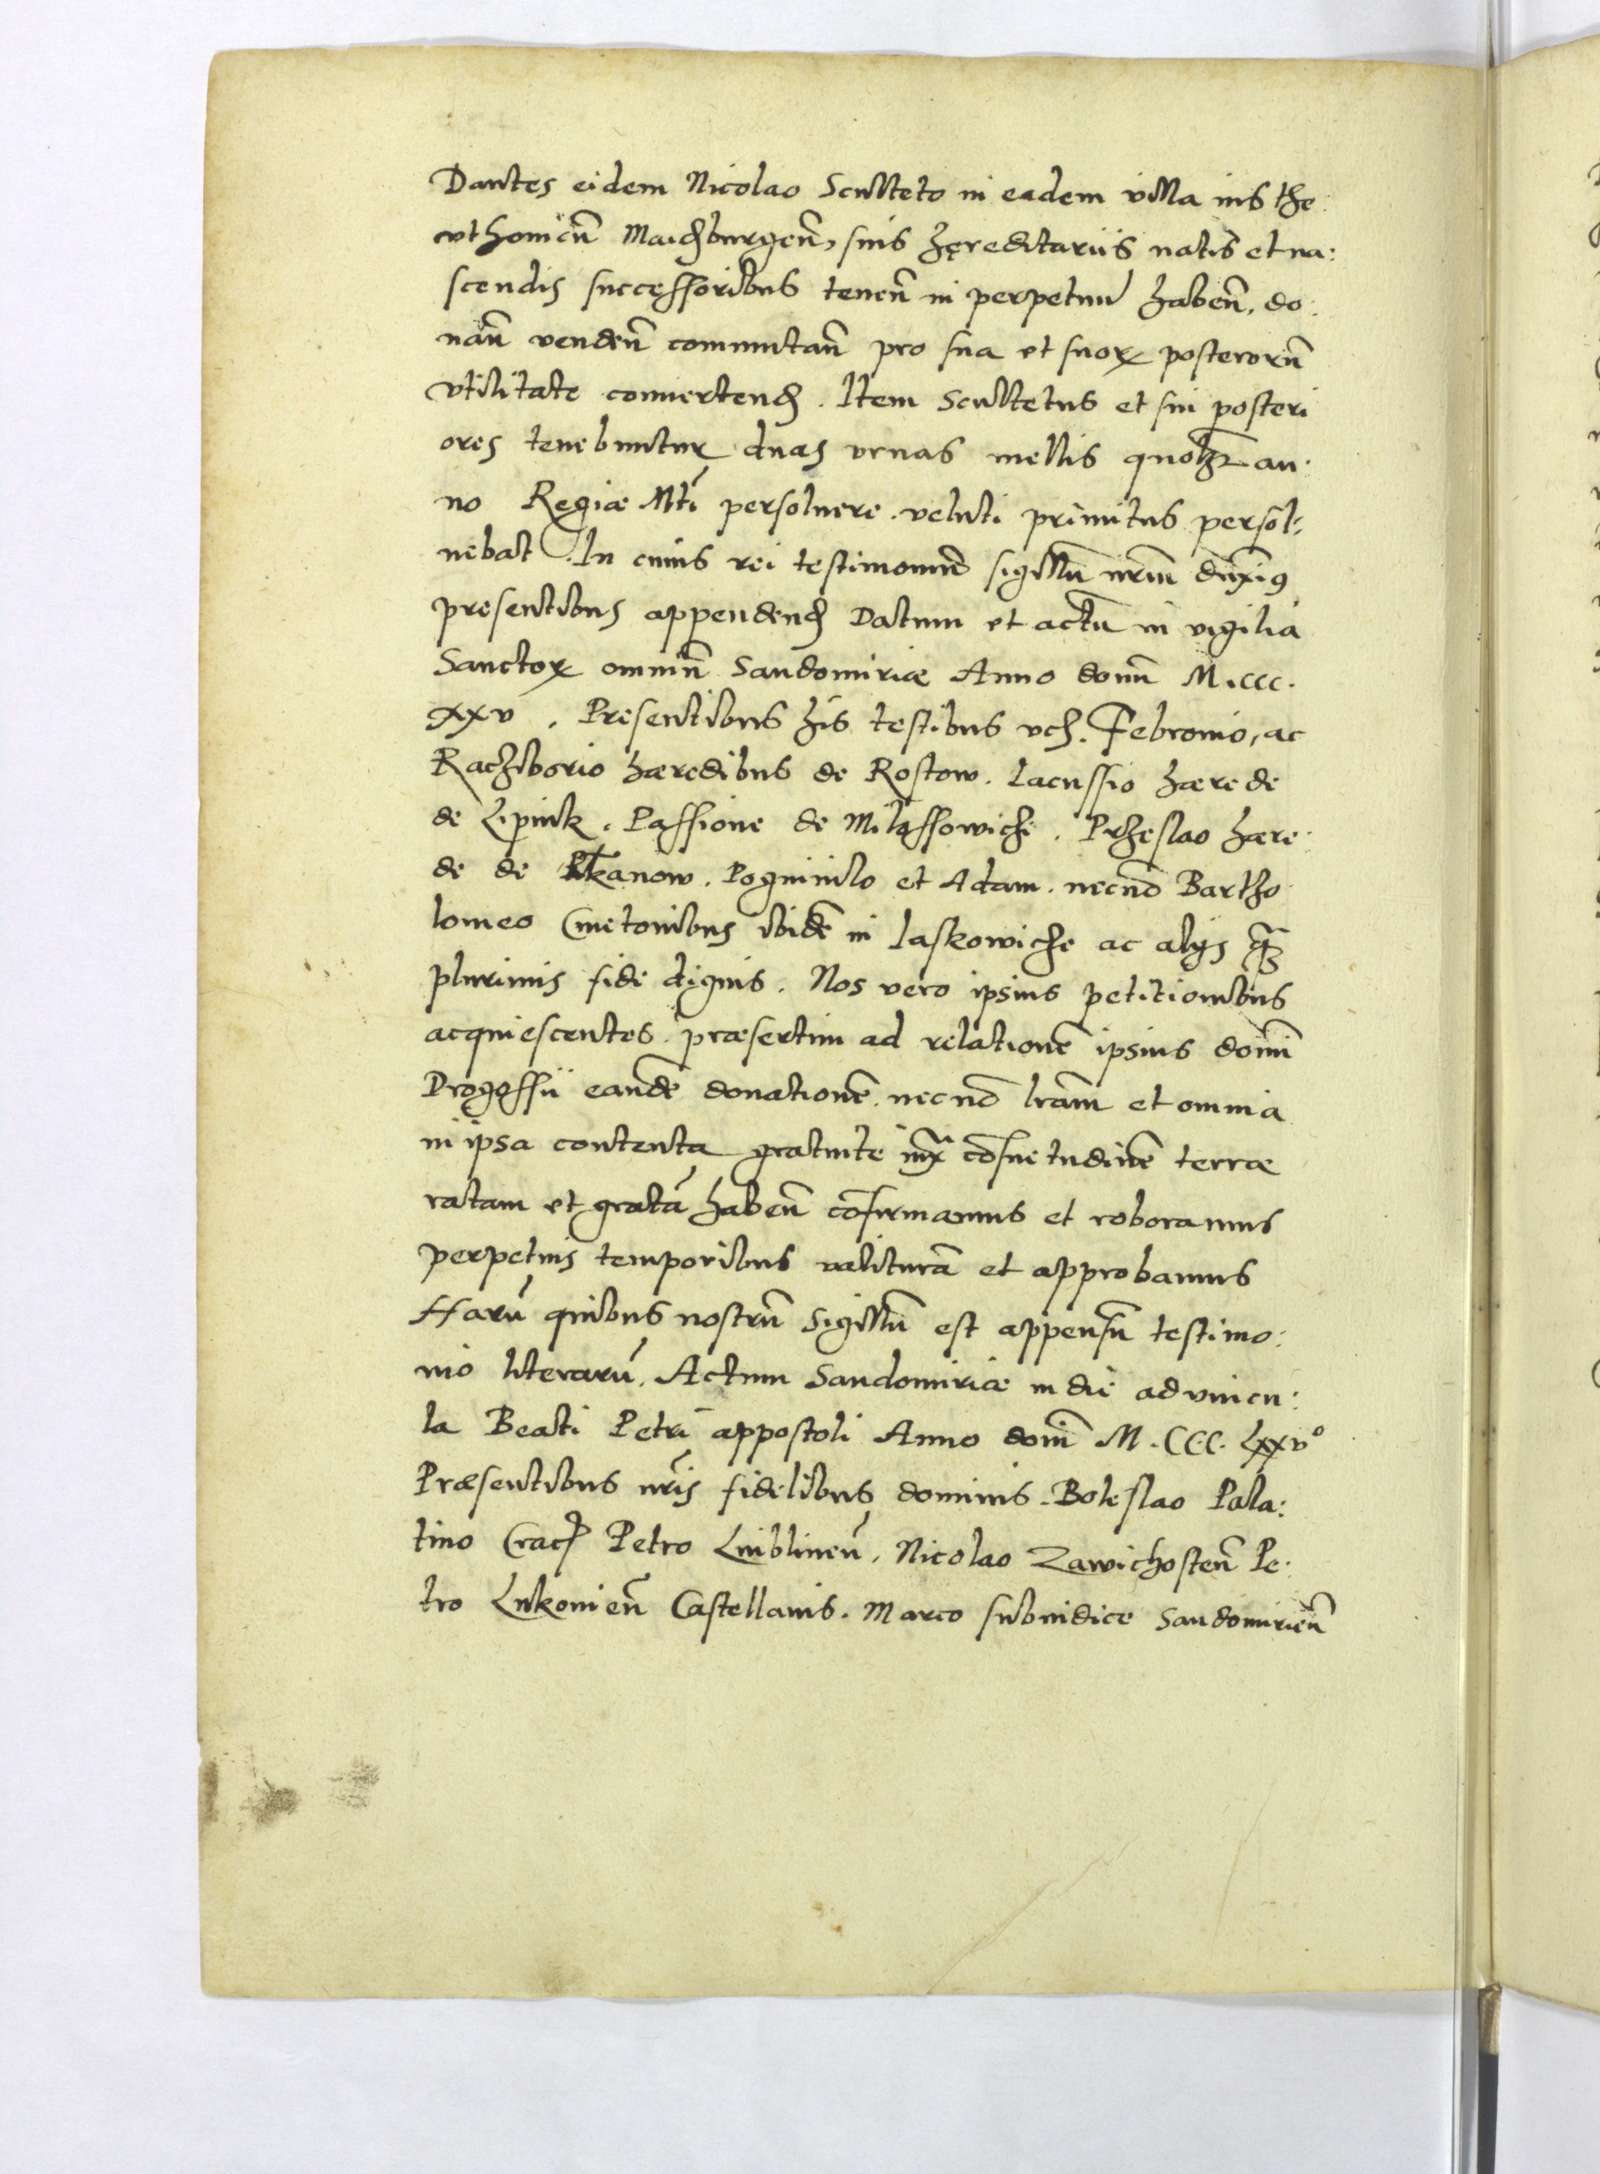 Dantes eidem Nicolao Sculteto in eadem villa ius the:
uthonicū Maidburgeñ, suis hęreditariis natis et na:
scendis successoribus teneñ in perpetuū habeñ. do:
nañ vendeñ commutañ pro sua et suoꝝ posterorū
vtilitate convertend. Item Scultetus et sui posteri
ores tenebuntur duas vrnas mellis quolꝫ an:
no Regiæ Mti persoluere. veluti primitus persol:
uebat. In cuius rei testimoniū sigillū nrm̄ duximꝰ
presentibus appendend Datum et actū in vigilia
Sanctoꝝ omniū Sandomiriæ Anno domī M.CCC.
XXV. Presentibus his testibus vch. Febronio, ac
Rachiborio hæredibus de Rostow. Lacussio hærede
de Lipnik. Passione de Milassowiche. Przeslao hære:
de de Pkanow. Pogninilo et Adam. necnō Bartho
lomeo Cmetonibus ibidē in Laskowiche ac alys qꝫ
plurimis fide dignis. Nos vero ipsius petitionibus
acquiescentes. præsertim ad relationē ipsius domī
Drogossii eandē donationē. necnō lrām et omnia
in ipsa contenta gratuite iuxᵃ cōsuetudinē terræ
ratam et gratā habeñ cōfirmamus et roboramus
perpetuis temporibus valiturā et approbamus
Harū quibus nostrū Sigillū est appensū testimo:
nio literarū. Actum Sandomiriæ in die ad vincu:
la Beati Petri appostoli Anno domī M.CCC.LXXVº
Præsentibus nrīs fidelibus dominis. Boleslao Pala:
tino Crac Petro Lublineñ. Nicolao Zawichosteñ Pe:
tro Lukonieñ Castellanis. Marco subiudice Sandomirieñ